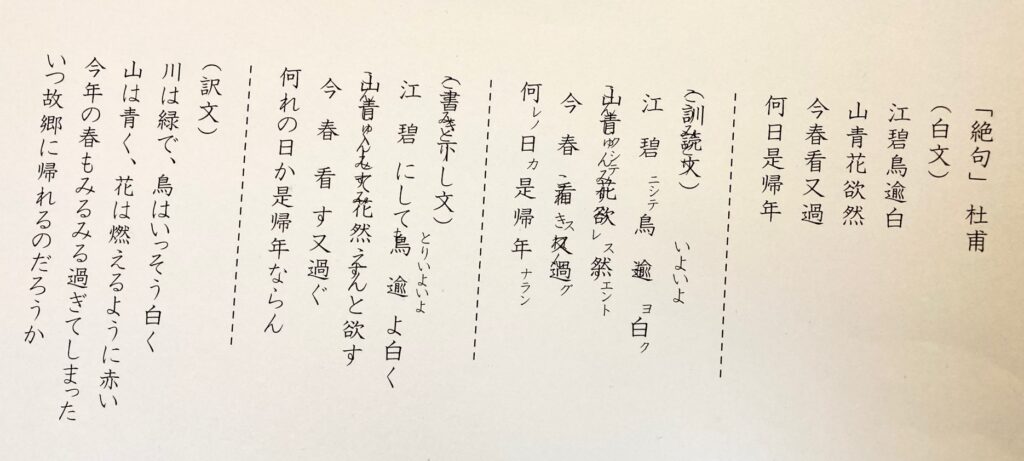 「絶句」 杜甫
（白文）
江碧鳥逾白
山青花欲然
今春看又過
何日是帰年
（訓読文）
江 碧 ニシテ 鳥 逾 ヨ 白 ク
いよいよ
山 青 シテ 花 欲 レ ス 然 エント
今 春 看 ス 又 過 グ
何 レノ 日 カ 是 帰 年 ナラン
（書き下し文）
江 碧 にして 鳥 逾 よ 白 く
とりいよいよ
山 青 花 然 えんと 欲 す
今 春 看 す 又 過 ぐ
何れの日か是帰年ならん
（訳文）
川は緑で、鳥はいっそう白く
山は青く、花は燃えるように赤い
今年の春もみるみる過ぎてしまった
いつ故郷に帰れるのだろうか